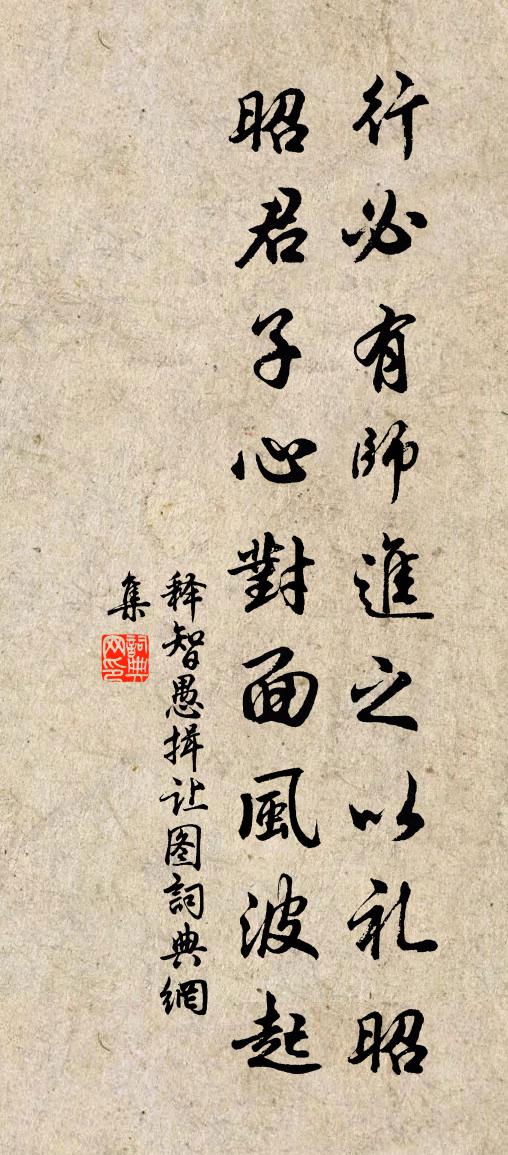 行必有師進之以礼昭
昭君子心對面風波起
释智愚揖让图詞典網
集
詞典
网印